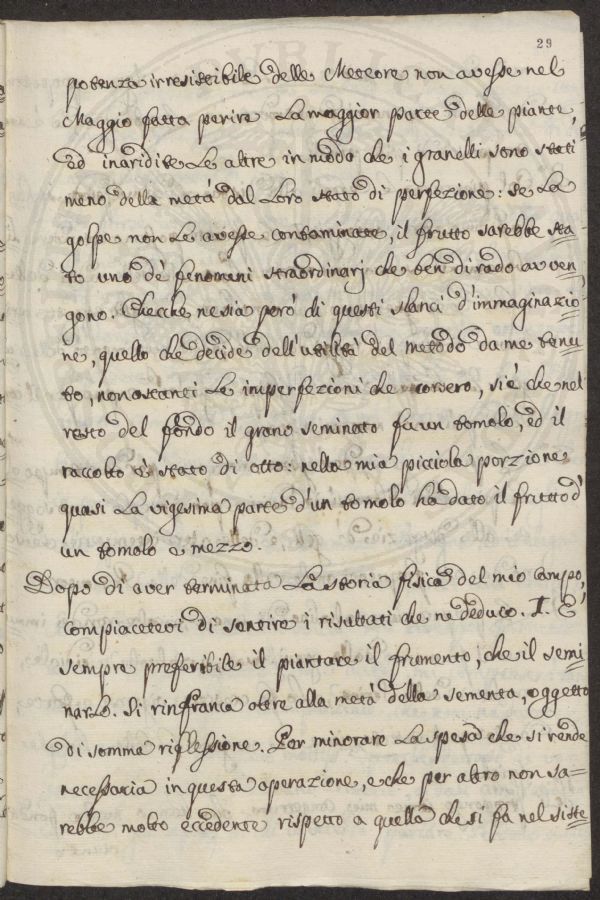 29
potenza irresistibile delle Meteore non avesse nel
Maggio fatta perire la maggior parte delle piante,
ed inaridite le altre in modo che i granelli sono stati
meno della metà dal loro stato di perfezione: se la
golpe non le avesse contaminate, il frutto sarebbe sta=
to uno dè fenomeni straordinarj che ben di rado avven=
gono. Checche ne sia però di questi slanci d'immaginazio=
ne, quello che decide dell'utilità del metodo da me tenu=
to, nonostanti le imperfezioni che corsero, si è che nel
resto del fondo il grano seminato fu un tomolo, ed il
raccolto è stato di otto: nella mia picciola porzione
quasi la vigesima parte d'un tomolo ha dato il frutto d'
un tomolo e mezzo.
Dopo di aver terminata la storia fisica del mio campo,
compiacetevi di sentire i risultati che ne deduco. I. È
sempre preferibile il piantare il frumento, che il semi=
narlo. Si rinfranca oltre alla metà della sementa, oggetto
di somma riflessione. Per minorare la spesa che si rende
necessaria in questa operazione, e che per altro non sa=
rebbe molto eccedente rispetto a quella che si fa nel siste=